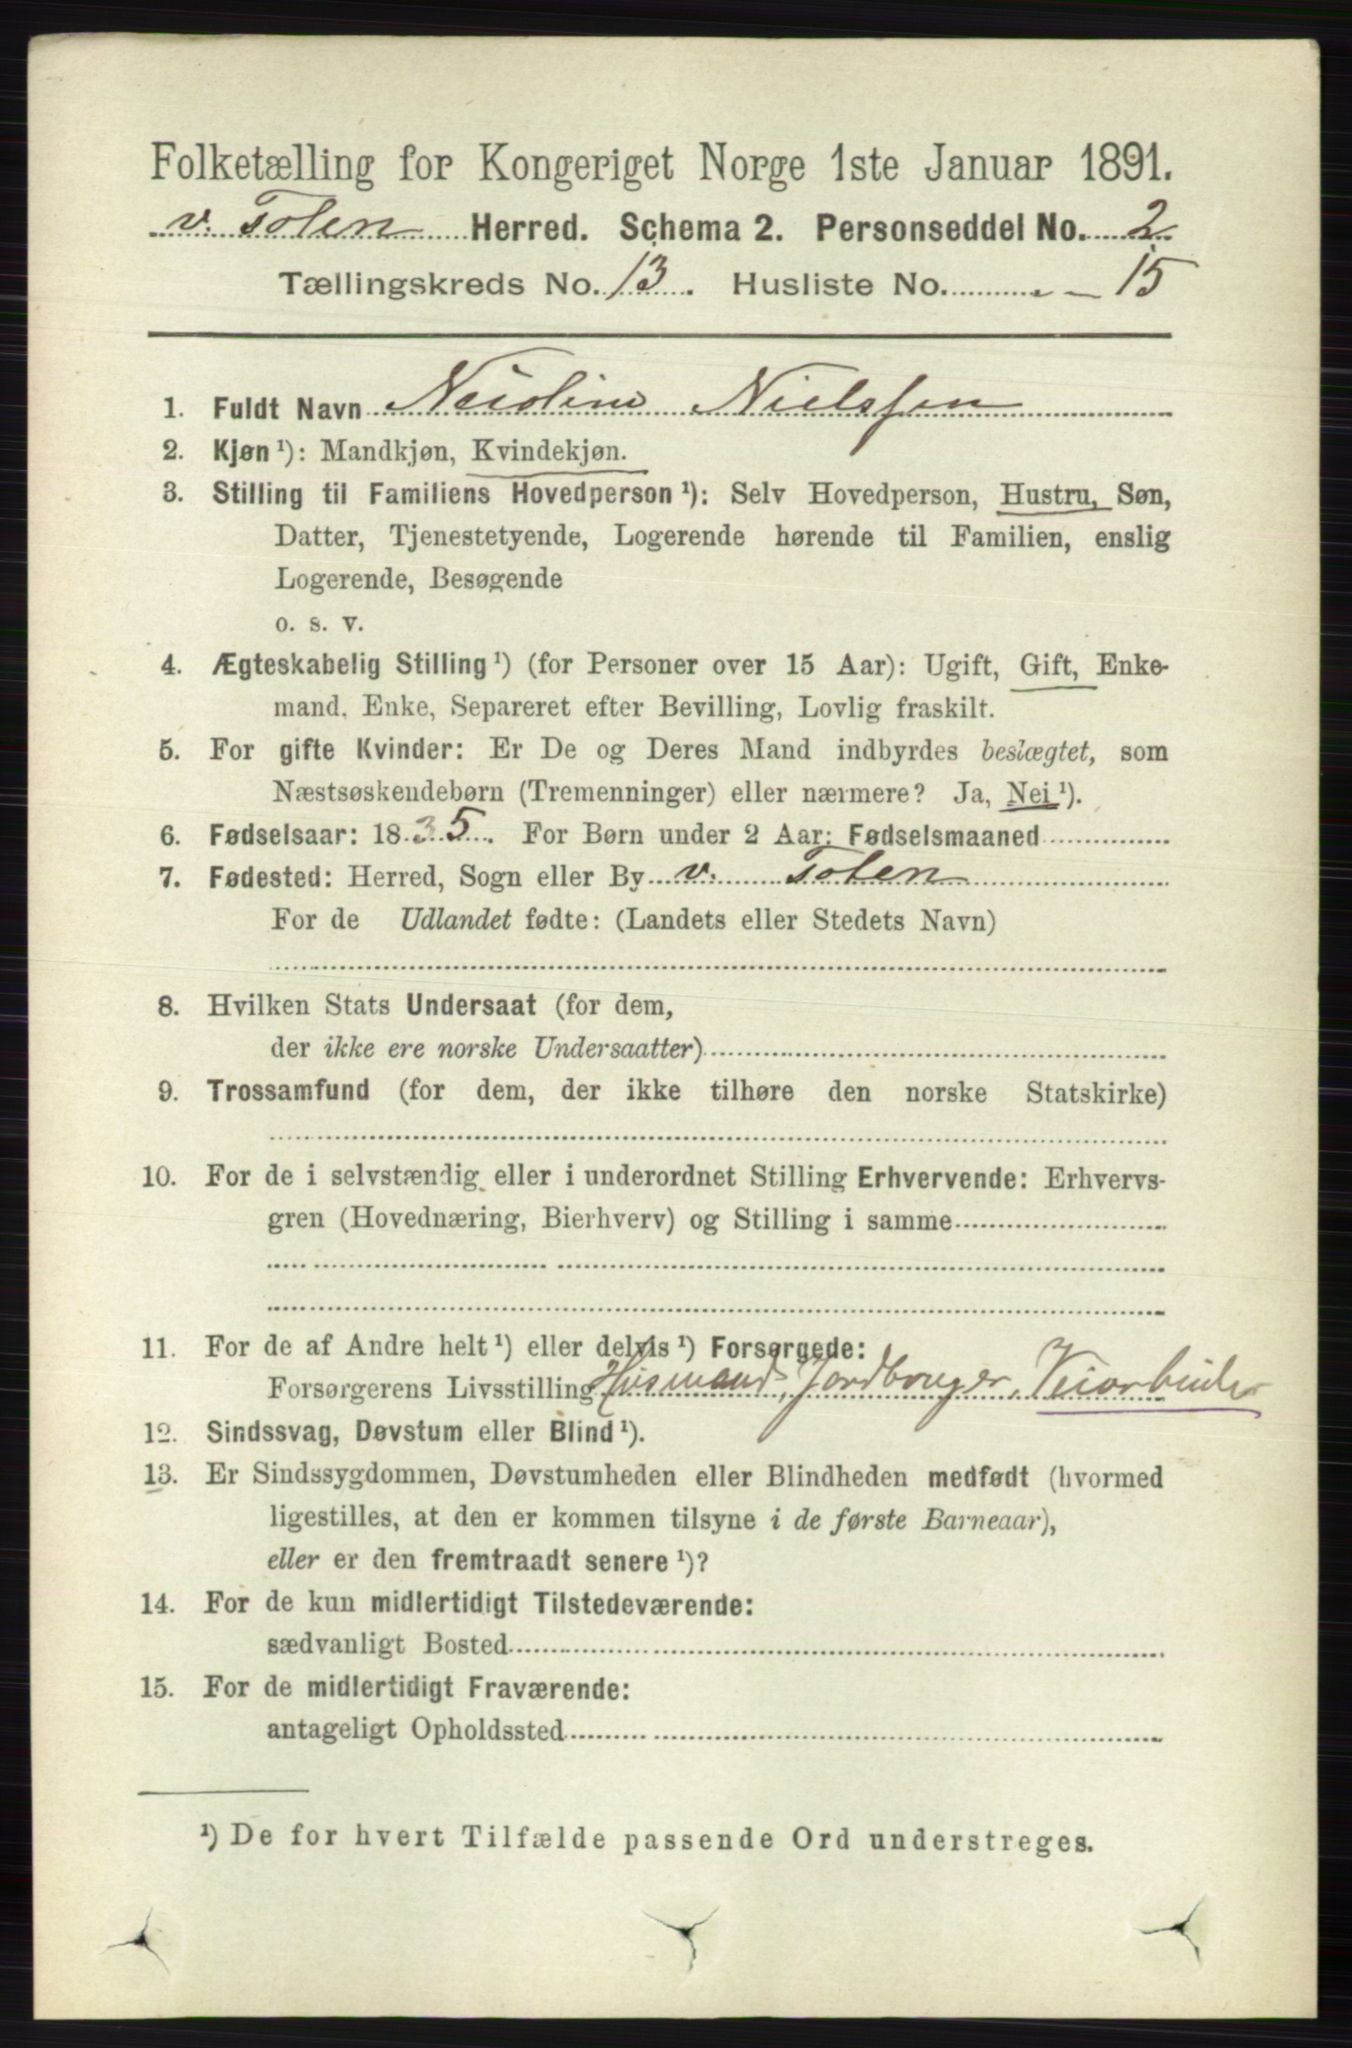 Folketælling for Kongeriget Norge 1ste Januar 1891.
v. Toten Herred. Schema 2. Personseddel No. 2
Tællingskreds No. 13. Husliste No. 15
1. Fuldt Navn Nicoline Nielssen
2. Kjøn ¹): Mandkjøn, Kvindekjøn.
3. Stilling til Familiens Hovedperson ¹): Selv Hovedperson, Hustru, Søn,
Datter, Tjenestetyende, Logerende hørende til Familien, enslig
Logerende, Besøgende
o. s. v.
4. Ægteskabelig Stilling ¹) (for Personer over 15 Aar): Ugift, Gift, Enke-
mand, Enke, Separeret efter Bevilling, Lovlig fraskilt.
5. For gifte Kvinder: Er De og Deres Mand indbyrdes beslægtet, som
Næstsøskendebørn (Tremenninger) eller nærmere? Ja, Nei ¹).
6. Fødselsaar: 1835. For Børn under 2 Aar: Fødselsmaaned
7. Fødested: Herred, Sogn eller By v. Toten
For de Udlandet fødte: (Landets eller Stedets Navn)
8. Hvilken Stats Undersaat (for dem,
der ikke ere norske Undersaatter)
9. Trossamfund (for dem, der ikke tilhøre den norske Statskirke)
10. For de i selvstændig eller i underordnet Stilling Erhvervende: Erhvervs-
gren (Hovednæring, Bierhverv) og Stilling i samme
11. For de af Andre helt ¹) eller delvis ¹) Forsørgede:
Forsørgerens Livsstilling Husmand, Jordbruger, Veiarbeider
12. Sindssvag, Døvstum eller Blind ¹).
13. Er Sindssygdommen, Døvstumheden eller Blindheden medfødt (hvormed
ligestilles, at den er kommen tilsyne i de første Barneaar),
eller er den fremtraadt senere ¹)?
14. For de kun midlertidigt Tilstedeværende:
sædvanligt Bosted
15. For de midlertidigt Fraværende:
antageligt Opholdssted
¹) De for hvert Tilfælde passende Ord understreges.